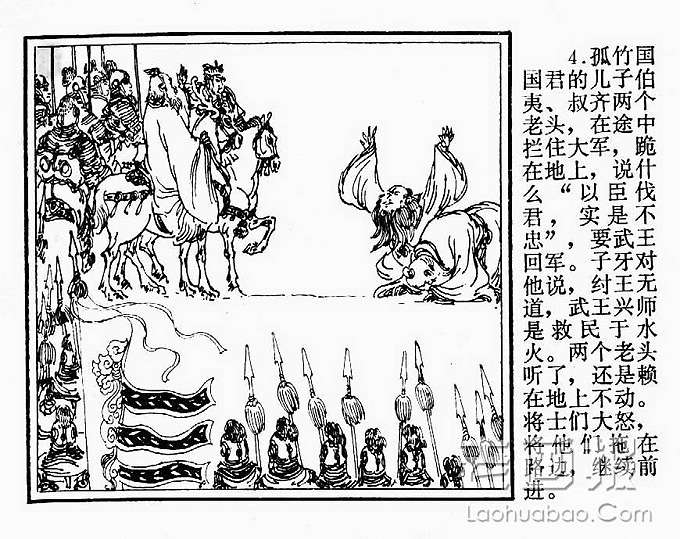 4.孤竹国
国君的儿子伯
夷、叔齐两个
老头，在途中
拦住大军，跪
在地上，说什
么“以臣伐
君，实是不
忠”，要武王
回军。子牙对
他说，纣王无
道，武王兴师
是救民于水
火。两个老头
听了，还是赖
在地上不动。
将士们大怒，
将他们拖在
路边，继续前
进。
老画报
Laohuabao.Com